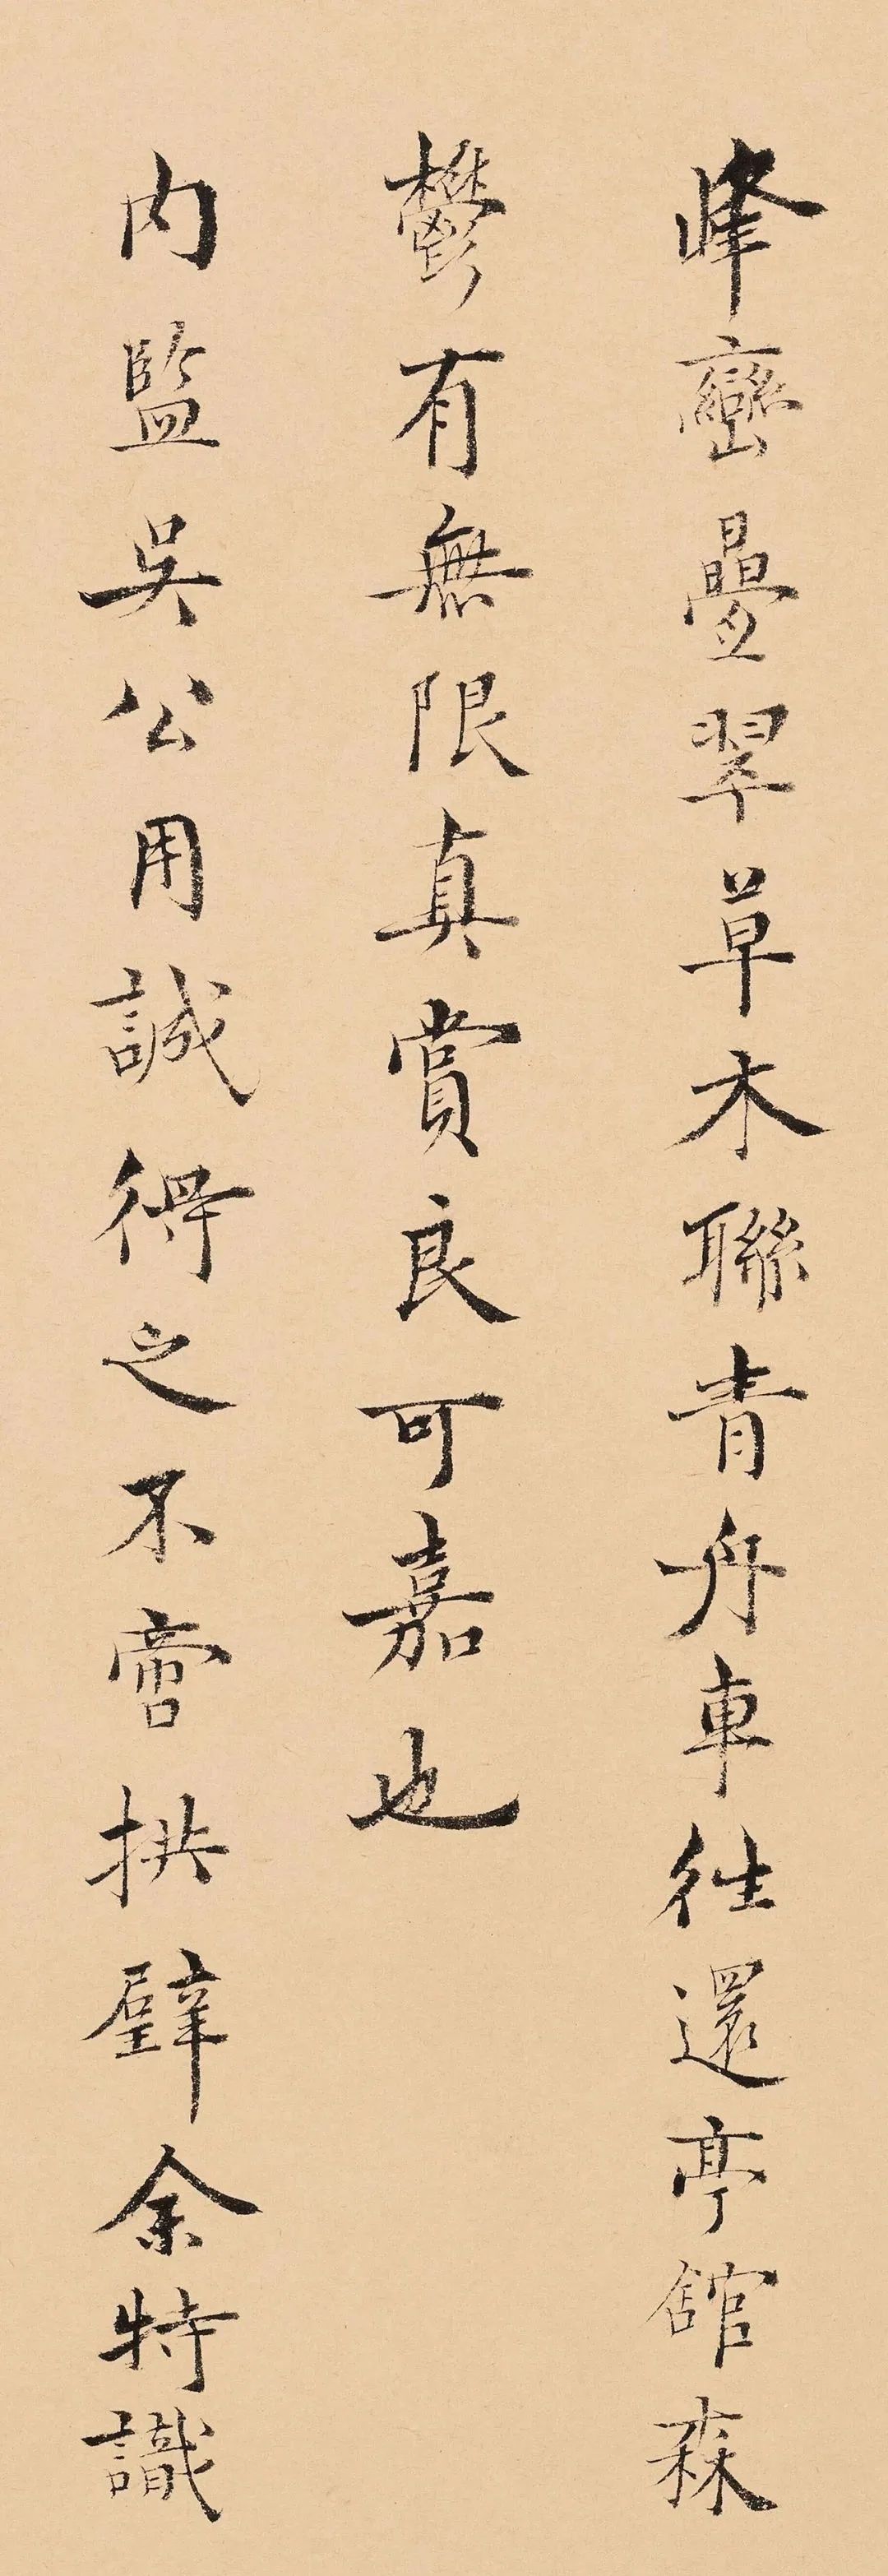 峰巒疊翠草木聯青舟車往還亭館森
鬱有無限真賞良可嘉也
內監吳公用誠得之不啻拱璧余特識